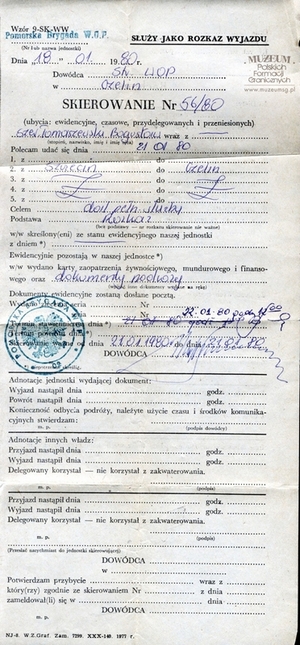 Wzór 9-SK-WW
SŁUŻY JAKO ROZKAZ WYJAZDU
Pomorska Brygada W.O.P.
(Nr lub nazwa jednostki)
MUZEUM
Polskich
Formacji
Granicznych
www.muzeumsg.pl
Dnia 18 01 1980
Dowódca SK WOP
w Czelin
SKIEROWANIE Nr 56/80
(ubycia: ewidencyjne, czasowe, przydelegowanych i przeniesionych)
Tomaszewski Bogusław wraz z
(stopień, nazwisko, imię i imię ojca)
Polecam udać się dnia 21 01 80
1. z do
2. z Szczecin do Czelin
3. z do
4. z do
5. z do
Celem dost. pełn. służby
Podstawa Rozkaz
(bez podstawy — rozkazu skierowanie nie ważne)
w/w skreślony(eni) ze stanu ewidencyjnego naszej jednostki
z dniem *)
Ewidencyjnie pozostają w naszej jednostce *)
w/w wydano karty zaopatrzenia żywnościowego, mundurowego i finansowego oraz dokumenty podróży
Dokumenty ewidencyjne zostaną dosłane pocztą.
Seria
Nr
22.01.80
21.01.1980 do dnia
DOWÓDCA
*) niepotrzebne skreślić,
Adnotacje jednostki wydającej dokument:
Wyjazd nastąpił dnia godz.
Powrót nastąpił dnia godz.
Konieczność odbycia podróży, należyte użycie czasu i środków komunikacyjnych stwierdzam:
m. p. (podpis dowódcy)
Adnotacje innych władz:
Przyjazd nastąpił dnia godz.
Wyjazd nastąpił dnia godz.
Delegowany korzystał — nie korzystał z zakwaterowania.
m. p. (podpis)
Przyjazd nastąpił dnia godz.
Wyjazd nastąpił dnia godz.
Delegowany korzystał — nie korzystał z zakwaterowania.
m. p. (podpis)
(Przesłać natychmiast do jednostki skierowującej)
DOWÓDCA
w
Potwierdzam przybycie wraz z
który(rzy) zgodnie ze skierowaniem Nr z dnia
zameldował(li) się w dnia
DOWÓDCA
m. p.
NJ-8. W.Z.Graf. Zam. 7299. XXX-140. 1977 r.